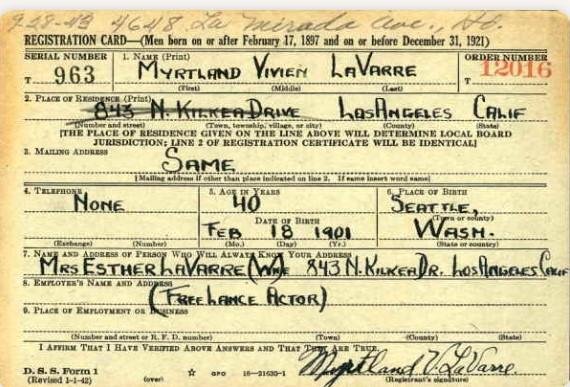 9-28-43 4648 La Mirada Ave., Ho.
REGISTRATION CARD—(Men born on or after February 17, 1897 and on or before December 31, 1921)
SERIAL NUMBER 1. NAME (Print) ORDER NUMBER
T 963 MYRTLAND VIVIEN LAVARRE T 12016
(First) (Middle) (Last)
2. PLACE OF RESIDENCE (Print)
843 N. KILKEA DRIVE LOS ANGELES CALIF
(Number and street) (Town, township, village, or city) (County) (State)
[THE PLACE OF RESIDENCE GIVEN ON THE LINE ABOVE WILL DETERMINE LOCAL BOARD
JURISDICTION; LINE 2 OF REGISTRATION CERTIFICATE WILL BE IDENTICAL]
3. MAILING ADDRESS
SAME
[Mailing address if other than place indicated on line 2. If same insert word same]
4. TELEPHONE 5. AGE IN YEARS 6. PLACE OF BIRTH
NONE 40 SEATTLE,
DATE OF BIRTH (Town or county)
FEB 18 1901 WASH.
(Exchange) (Number) (Mo.) (Day) (Yr.) (State or country)
7. NAME AND ADDRESS OF PERSON WHO WILL ALWAYS KNOW YOUR ADDRESS
MRS ESTHER LAVARRE (WIFE 843 N. KILKEA DR. LOS ANGELES CALIF
8. EMPLOYER'S NAME AND ADDRESS
(FREE LANCE ACTOR)
9. PLACE OF EMPLOYMENT OR BUSINESS
(Number and street or R. F. D. number) (Town) (County) (State)
I AFFIRM THAT I HAVE VERIFIED ABOVE ANSWERS AND THAT THEY ARE TRUE.
D. S. S. Form 1 Myrtland V. LaVarre
(Revised 1-1-42) (over) GPO 16—21630-1 (Registrant's signature)